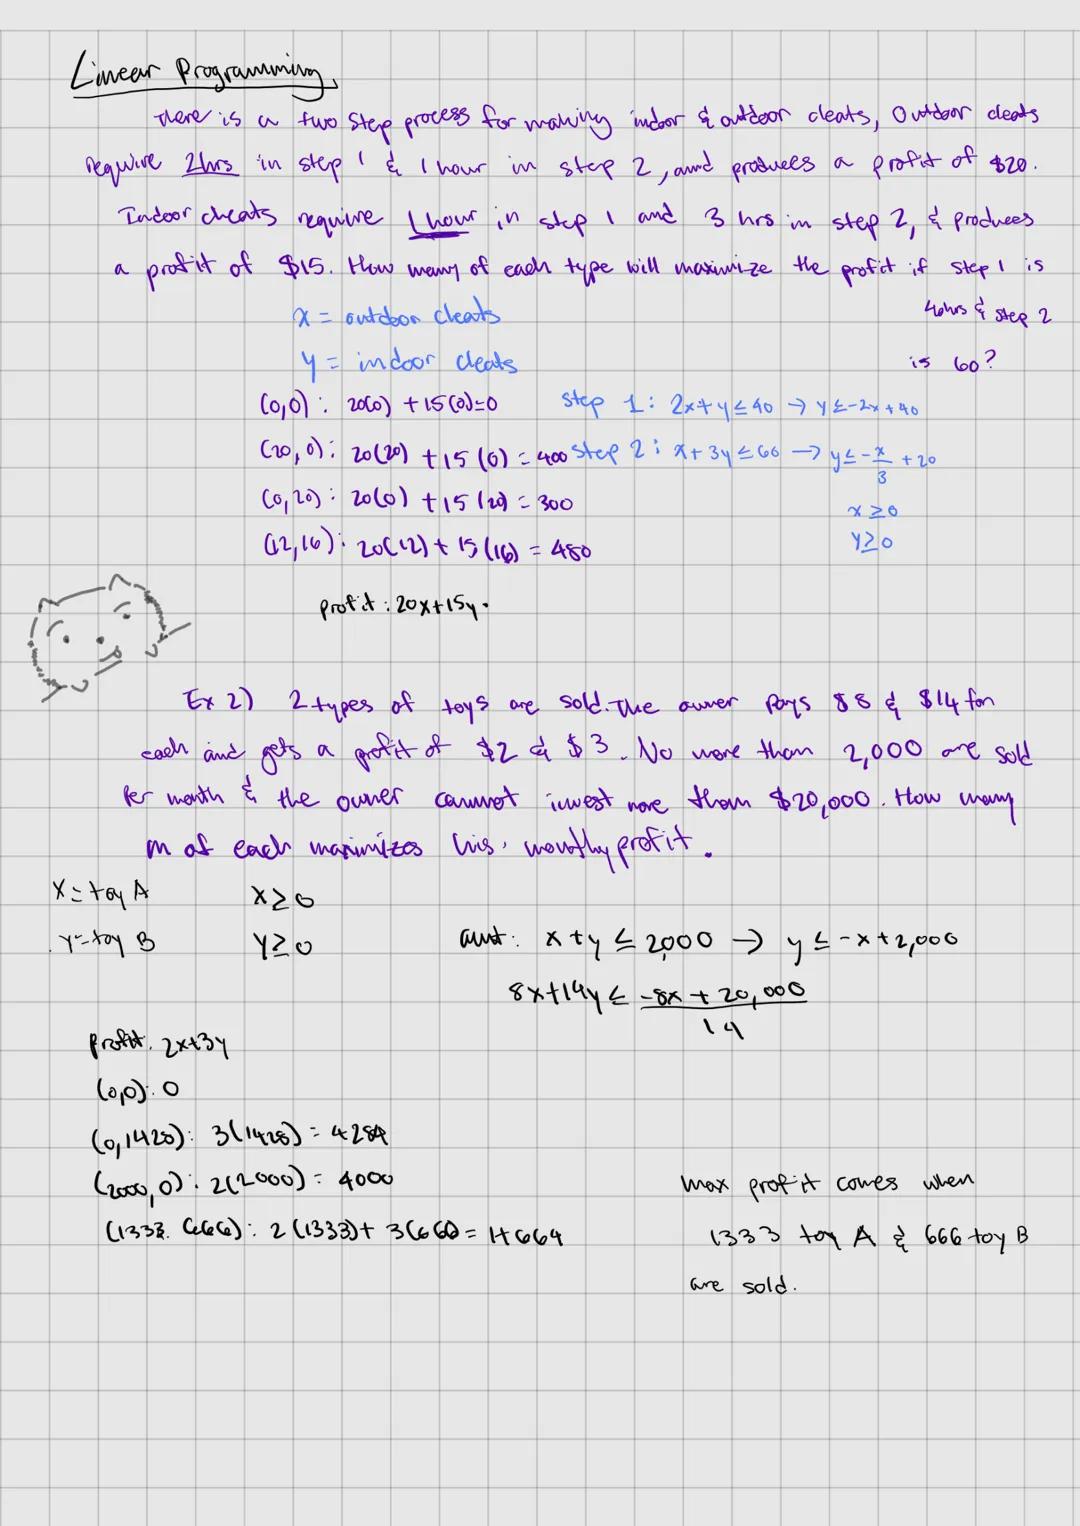 Linear Programming
There is a two step process for making indoor & outdoor cleats, Outdoor cleats
require 2hrs in step 1 & 1 hour in step 2, and produces a profit of $20.
Indoor cleats require 1 hour in step 1 and 3 hrs in step 2, & produces
a profit of $15. How many of each type will maximize the profit if step 1 is
40hrs & step 2
is 60?
x = outdoor cleats
y = indoor cleats
(0,0): 20(0) + 15(0)=0
step 1: 2x+y ≤ 40 → y ≤ -2x+40
(20,0): 20(20) + 15(0) = 400
step 2: x+3y ≤ 60 → y ≤ -x/3 + 20
(0,20): 20(0) + 15(20) = 300
x ≥ 0
(12,16): 20(12) + 15(16) = 480
y ≥ 0
profit: 20x+15y.
Ex 2) 2 types of toys are sold. The owner pays $8 & $14 for
each and gets a profit of $2 & $3. No more than 2,000 are sold
Per month & the owner cannot invest more than $20,000. How many
m of each maximizes his monthly profit.
x = toy A
x ≥ 0
y = toy B
y ≥ 0
amt: x+y ≤ 2,000 → y ≤ -x+2,000
8x+14y ≤ -8x + 20,000
14
profit: 2x+3y
(0,0): 0
(0,1428): 3(1428) = 4284
(2000,0): 2(2000) = 4000
max profit comes when
(1333. 666): 2(1333)+ 3(666) = 4664
1333 toy A & 666 toy B
are sold.